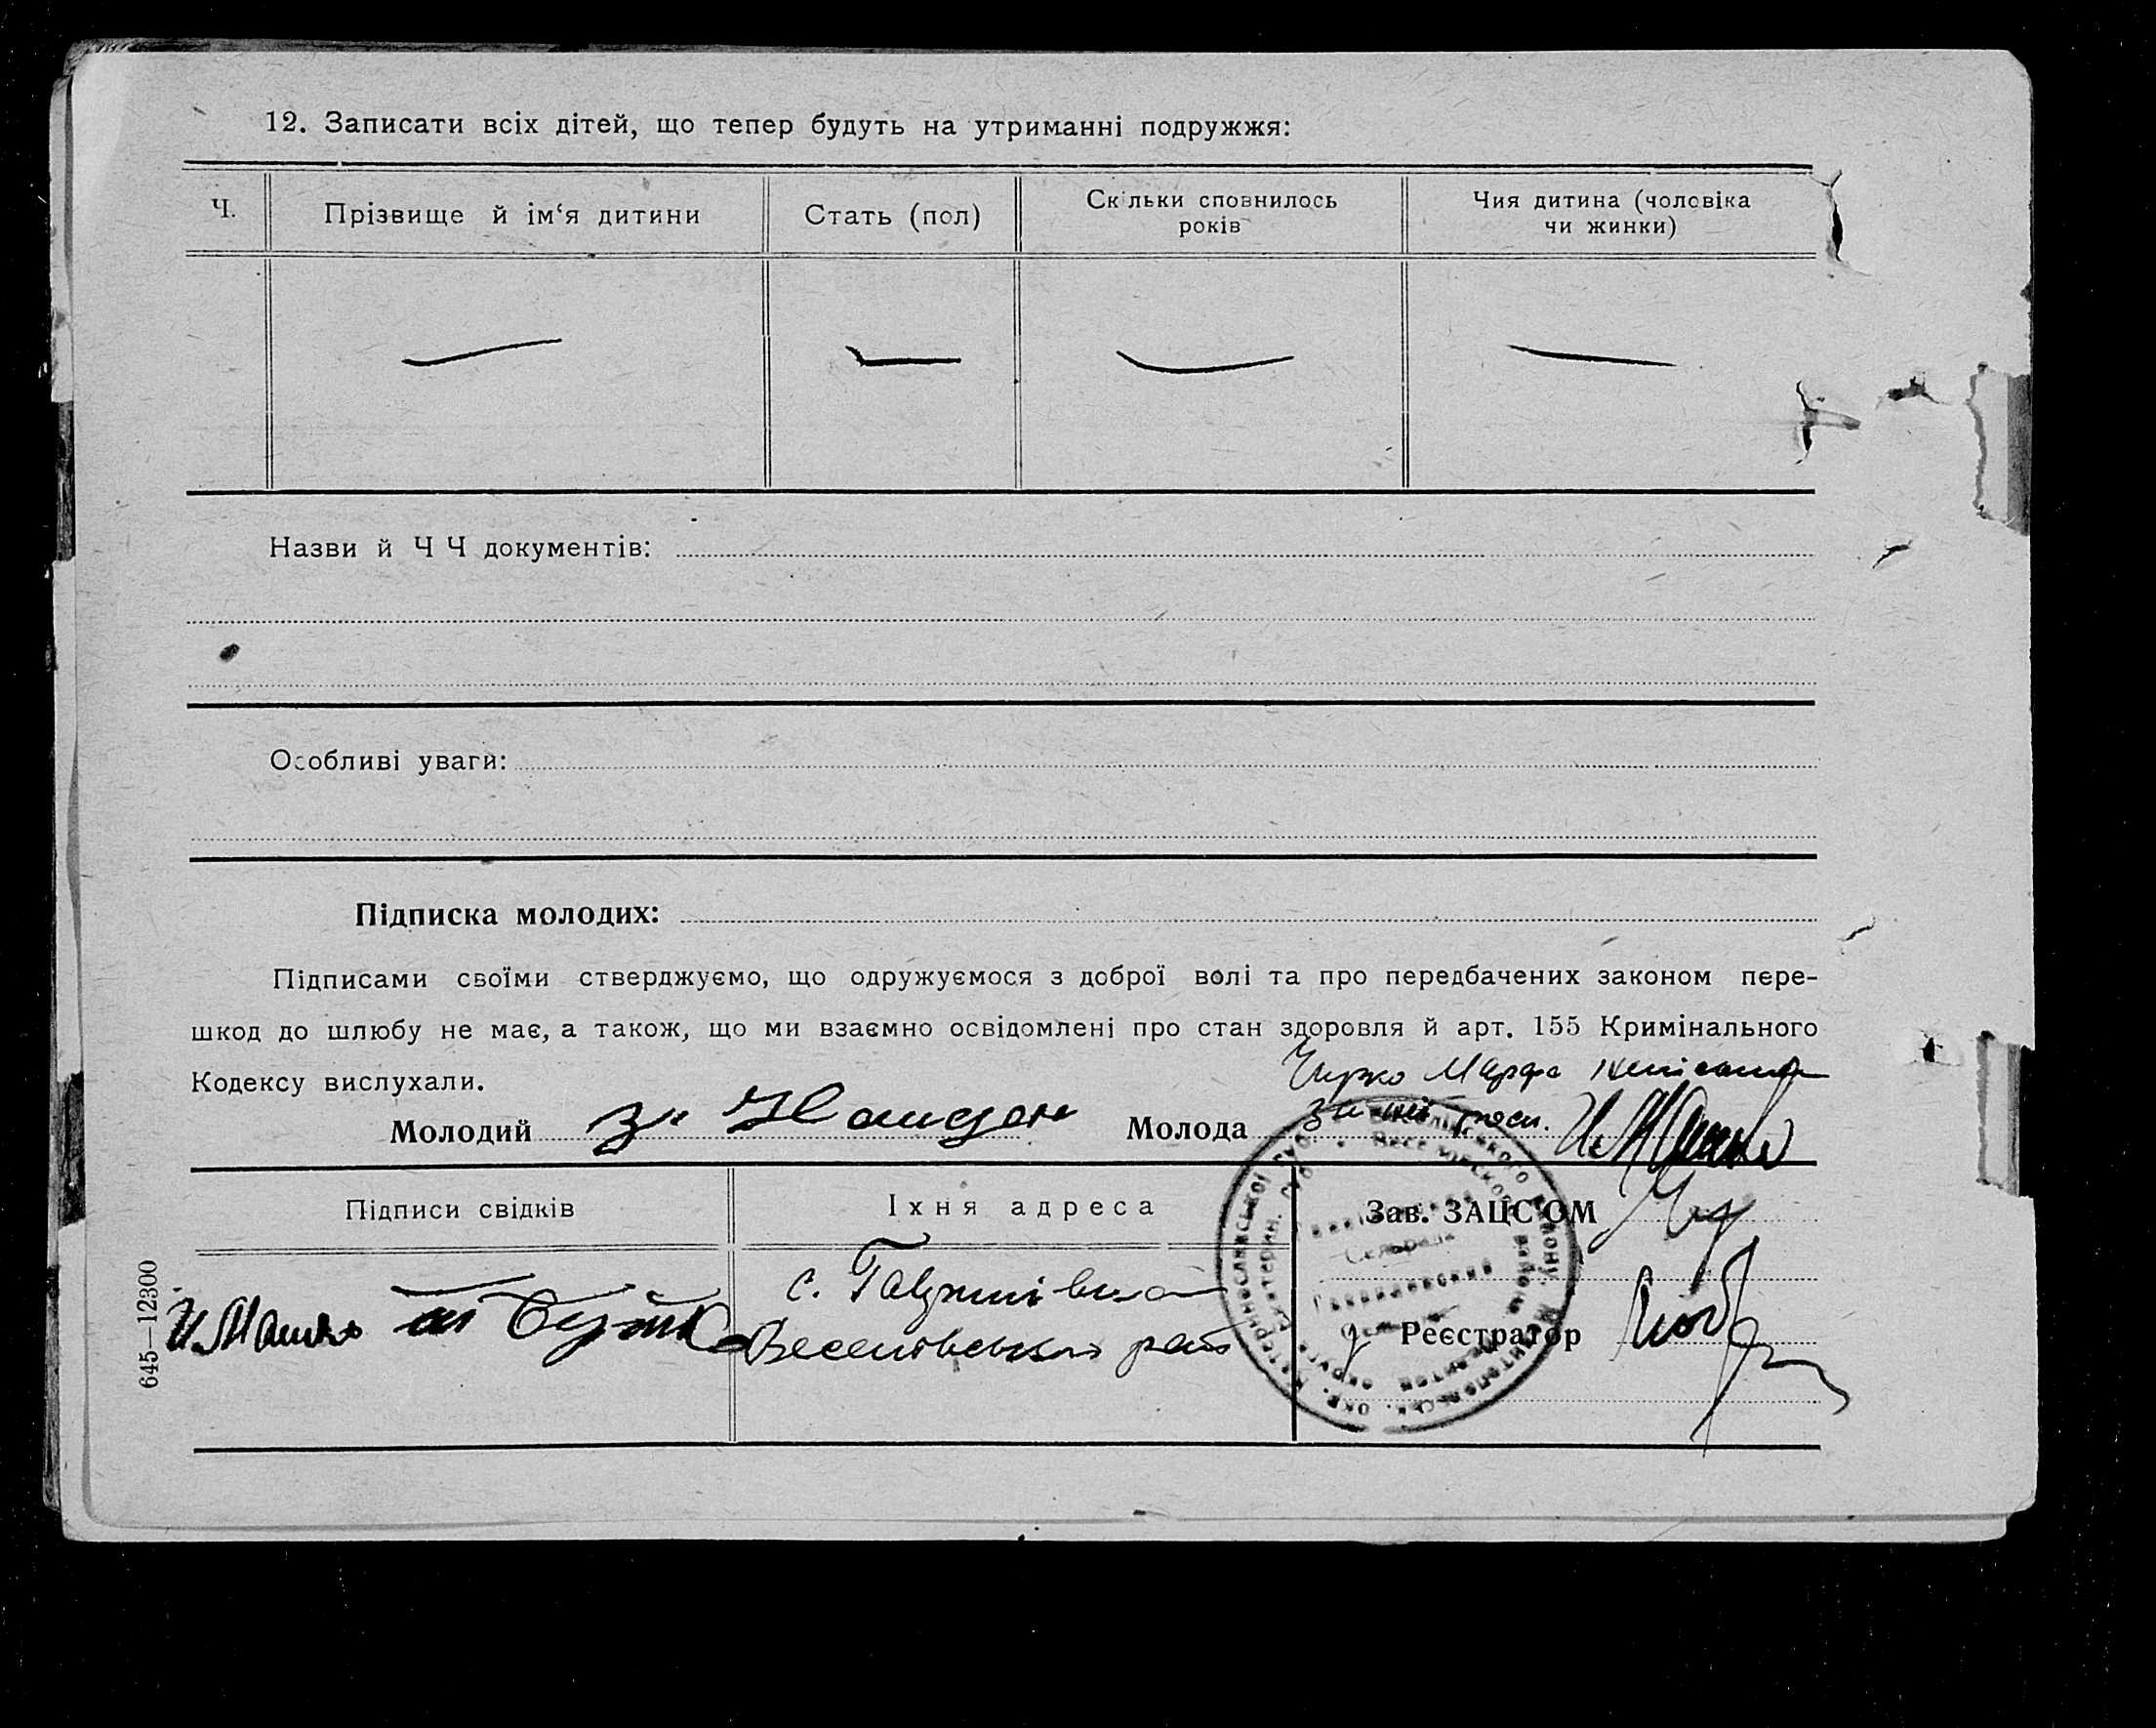 12. Записати всіх дітей, що тепер будуть на утриманні подружжя:
Ч.
Прізвище й ім‘я дитини
Стать (пол)
Скільки сповнилось
років
Чия дитина (чоловіка
чи жинки)
Назви й Ч Ч документів:
Особливі уваги:
Підписка молодих:
Підписами своїми стверджуємо, що одружуємося з доброї волі та про передбачених законом пере-
шкод до шлюбу не має, а також, що ми взаємно освідомлені про стан здоровля й арт. 155 Кримінального
Кодексу вислухали.
Чирко Марфа
Молодий
Молода
Підписи свідків
Їхня адреса
Зав. ЗАЦС'ОМ
с.
И. Машко
Реєстратор
645—12300